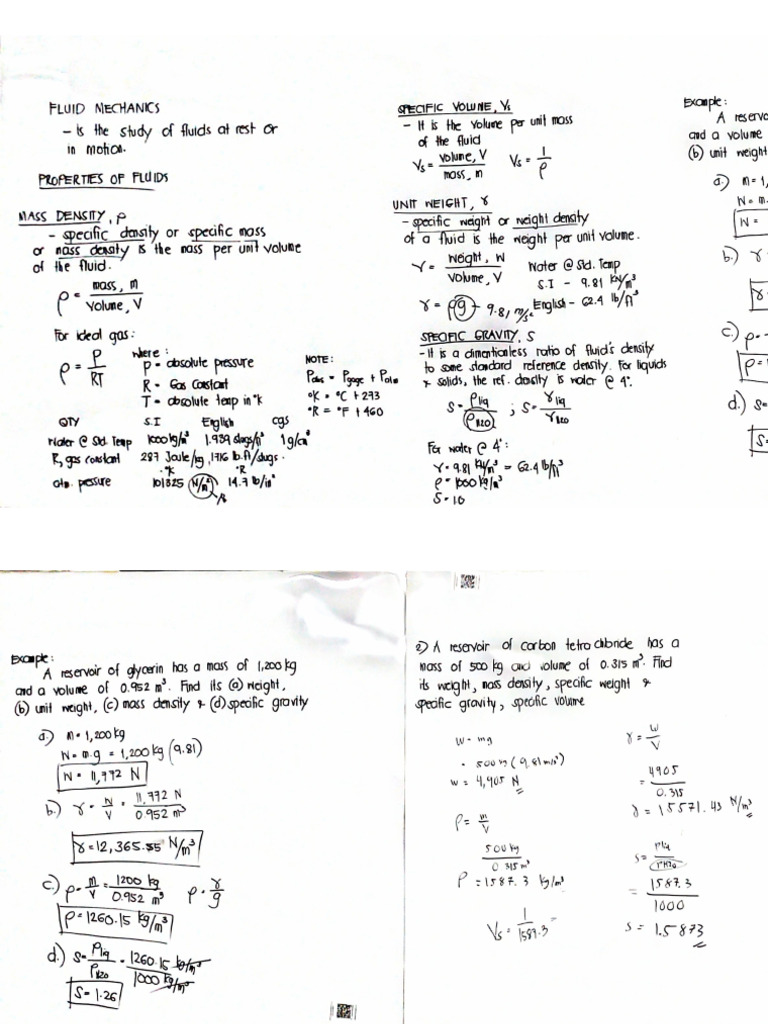 FLUID MECHANICS
- Is the study of fluids at rest or
in motion.
PROPERTIES OF FLUIDS
MASS DENSITY, ρ
- specific density or specific mass
or mass density is the mass per unit volume
of the fluid.
ρ = mass, m / volume, V
For ideal gas:
ρ = P / RT
where:
P = absolute pressure
R = Gas Constant
T = absolute temp in °K
NOTE:
Pabs = Pgage + Patm
°K = °C + 273
°R = °F + 460
QTY S.I English cgs
Water @ Std. Temp 1000 kg/m³ 1.939 slugs/ft³ 1g/cm³
R, gas constant 287 Joule/kg °K, 1716 lb.ft/slugs °R
atm. pressure 101325 N/m² 14.7 lb/in²
Pa
SPECIFIC VOLUME, Vs
- It is the volume per unit mass
of the fluid
Vs = volume, V / mass, m Vs = 1 / ρ
UNIT WEIGHT, γ
- specific weight or weight density
of a fluid is the weight per unit volume.
γ = weight, W / volume, V
Water @ Std. Temp
S.I - 9.81 KN/m³
English - 62.4 lb/ft³
γ = ρg - 9.81 m/s²
SPECIFIC GRAVITY, S
- It is a dimentionless ratio of fluid's density
to some standard reference density. For liquids
& solids, the ref. density is water @ 4°.
S = ρliq / ρH2O ; S = γliq / γH2O
For water @ 4°:
γ = 9.81 KN/m³ = 62.4 lb/ft³
ρ = 1000 kg/m³
S = 1.0
Example:
A reservo
and a volume
(b) unit weight
a.) m = 1,
W = m.
W =
b.) γ =
γ
c.) ρ =
ρ =
d.) S =
S =
Example:
A reservoir of glycerin has a mass of 1,200 kg
and a volume of 0.952 m³. Find its (a) weight,
(b) unit weight, (c) mass density & (d) specific gravity
a.) m = 1,200 kg
W = m.g = 1,200 kg (9.81)
W = 11,772 N
b.) γ = W / V = 11,772 N / 0.952 m³
γ = 12,365.55 N/m³
c.) ρ = m / V = 1200 kg / 0.952 m³ ρ = γ / g
ρ = 1260.15 kg/m³
d.) S = ρliq / ρH2O = 1260.15 kg/m³ / 1000 kg/m³
S = 1.26
2) A reservoir of carbon tetrachloride has a
mass of 500 kg and volume of 0.315 m³. Find
its weight, mass density, specific weight &
specific gravity, specific volume
W = mg
= 500 (9.81 m/s²)
W = 4,905 N
ρ = m / V
500 kg / 0.315 m³
ρ = 1587.3 kg/m³
Vs = 1 / 1587.3 =
γ = W / V
= 4905 / 0.315
γ = 15571.43 N/m³
S = ρliq / ρH2O
= 1587.3 / 1000
S = 1.5873